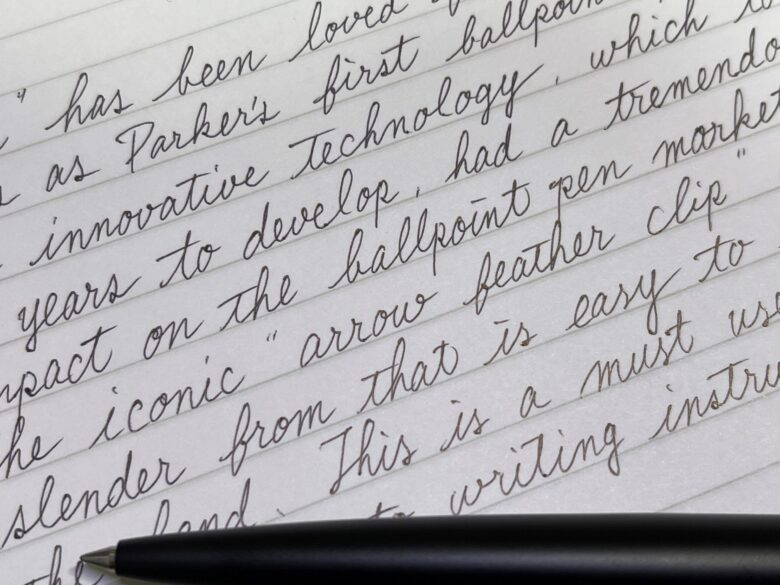 " has been loved
as Parker's first ballpoin
innovative technology, which
years to develop, had a tremendo
mpact on the ballpoint pen market
he iconic "arrow feather clip"
slender from that is easy to
the hand. This is a must use
to writing instru